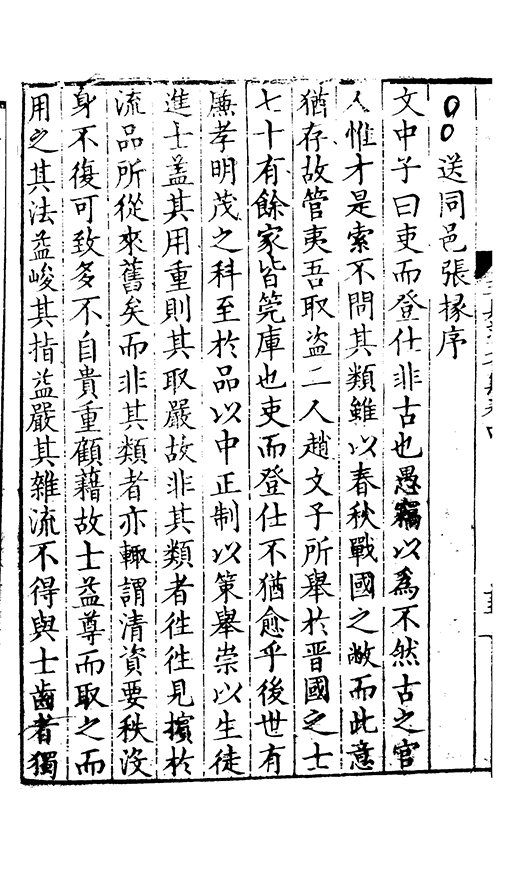 ○○送同邑張掾序
文中子曰吏而登仕非古也愚竊以為不然古之官
人惟才是索不問其類雖以春秋戰國之敝而此意
猶存故管夷吾取盜二人趙文子所舉於晉國之士
七十有餘家皆筦庫也吏而登仕不猶愈乎後世有
廉孝明茂之科至於品以中正制以策舉崇以生徒
進士盖其用重則其取嚴故非其類者徃徃見擯於
流品所從來舊矣而非其類者亦輙謂清資要秩沒
身不復可致多不自貴重顧藉故士益尊而取之而
用之其法益峻其指益嚴其雜流不得與士齒者獨